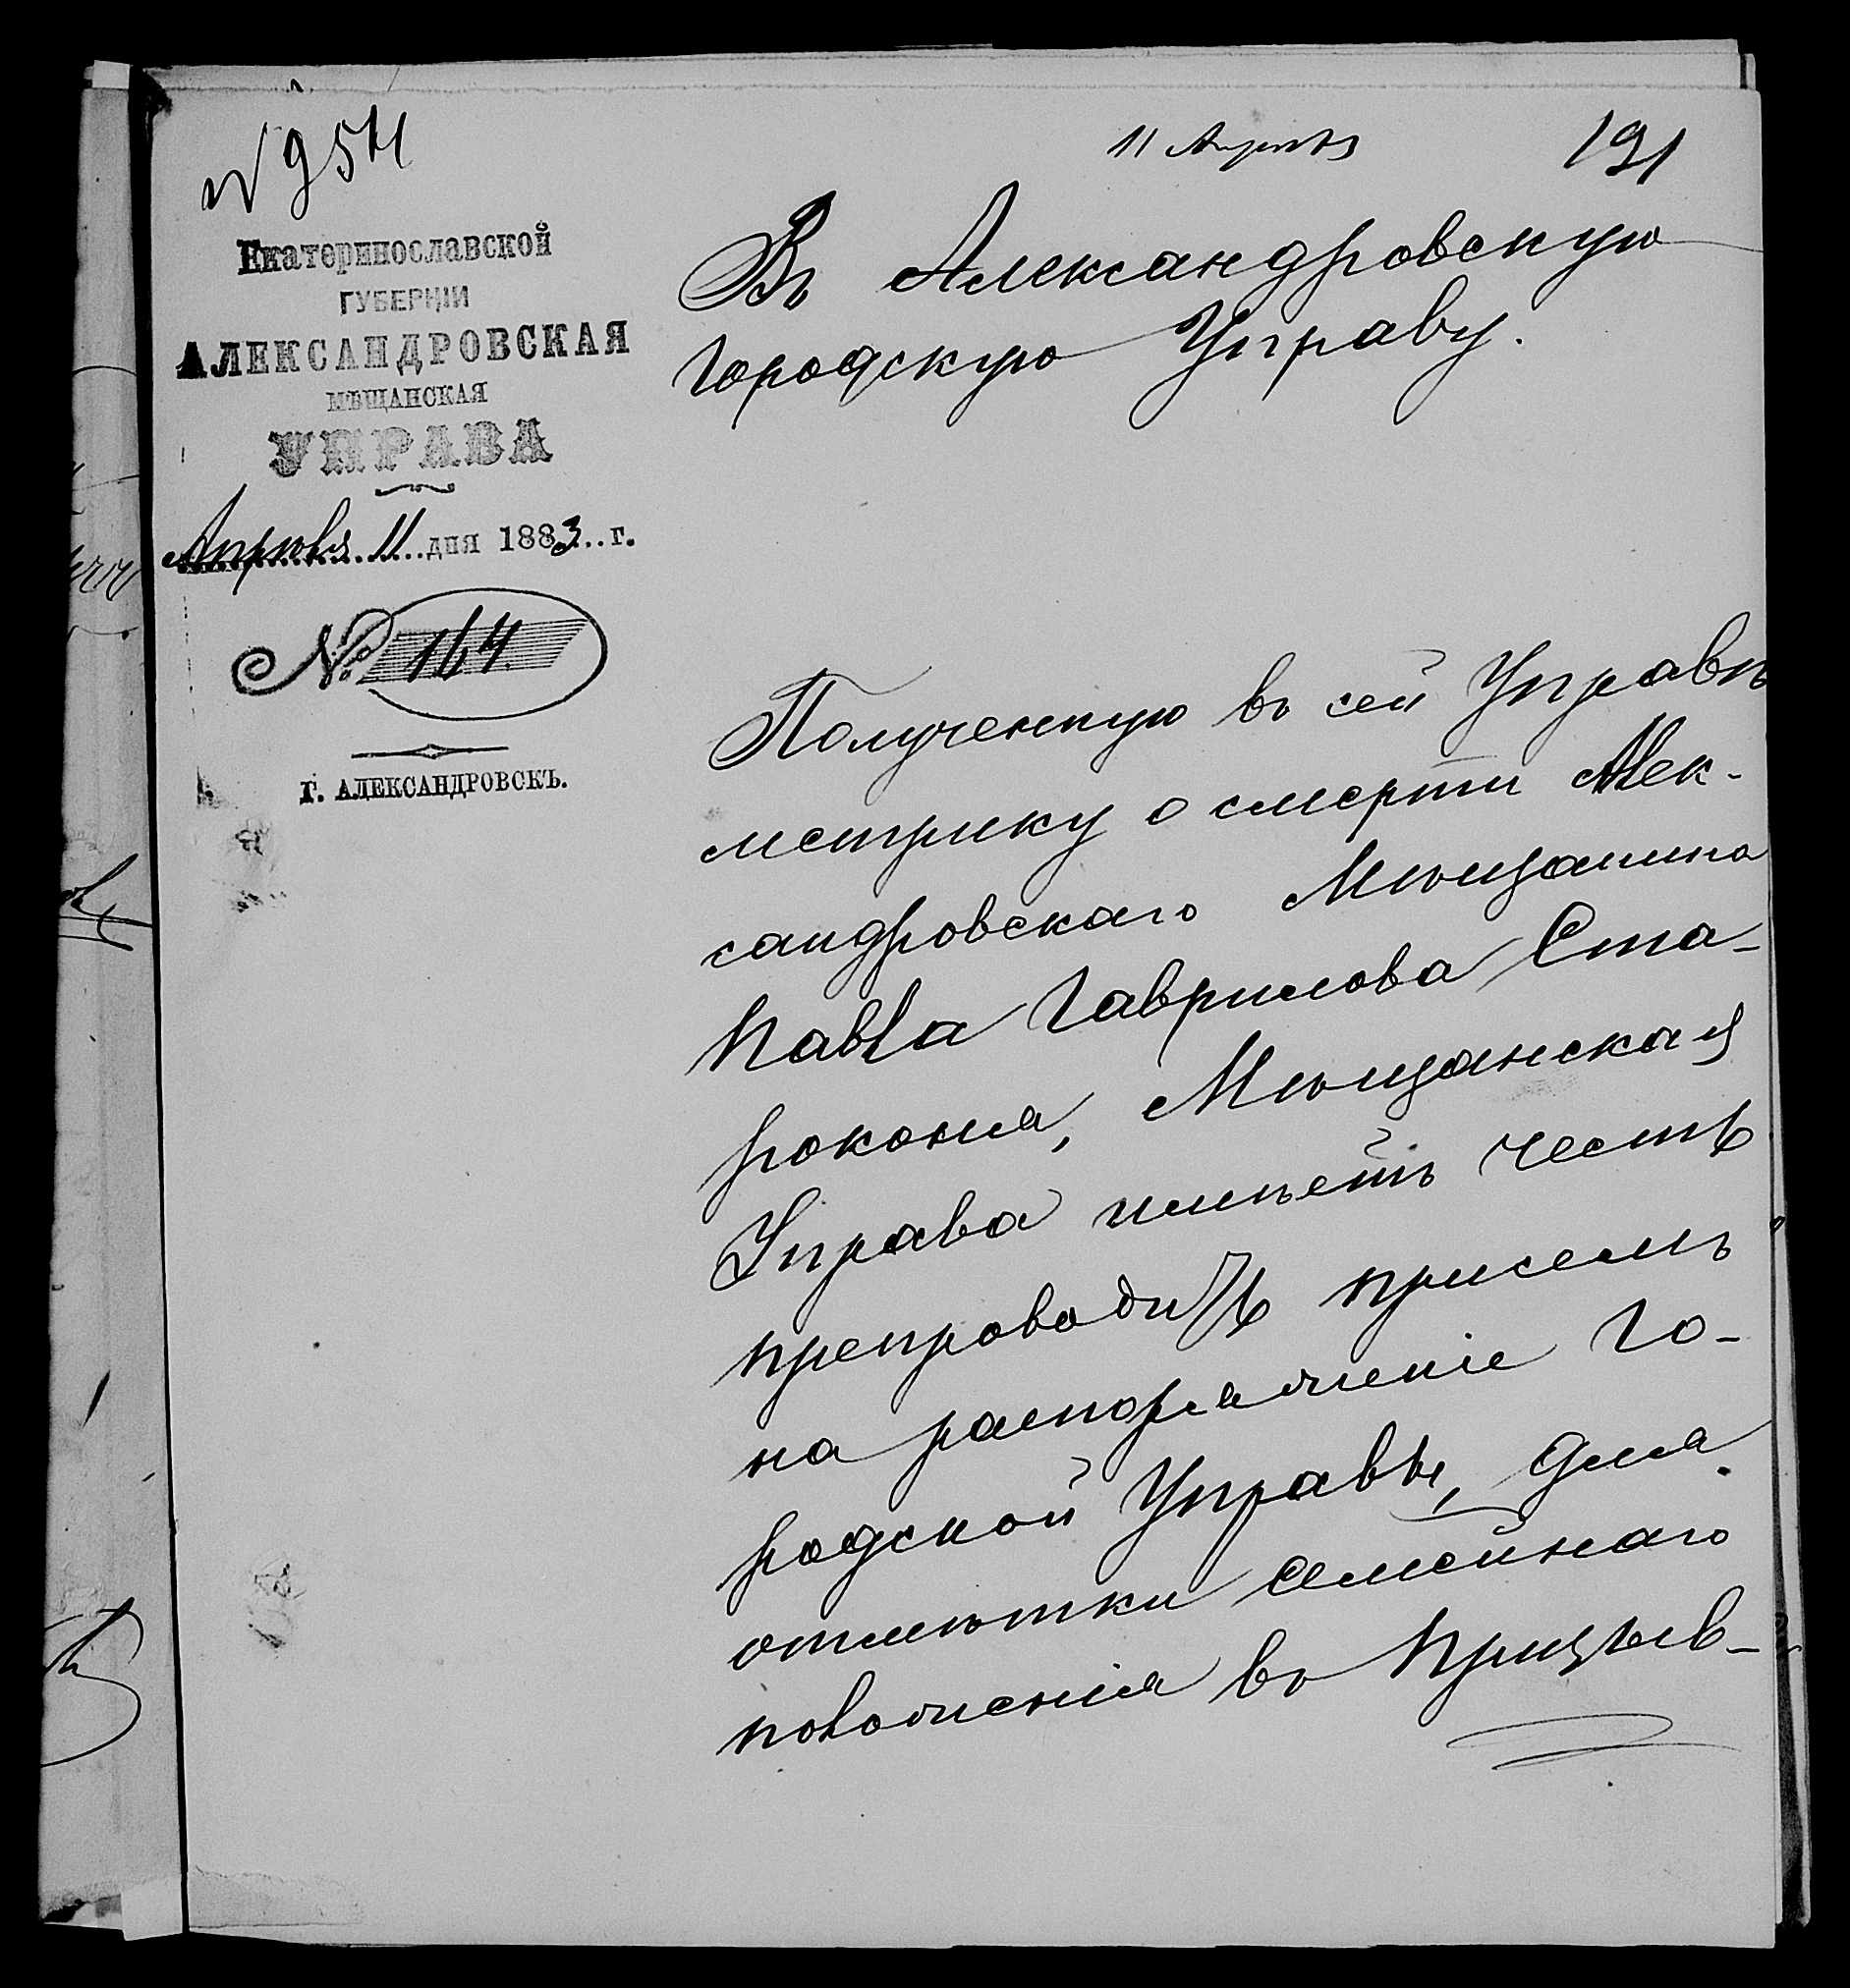 № 954
11 Апреля
191
Екатеринославской
ГУБЕРНІИ
АЛЕКСАНДРОВСКАЯ
МѢЩАНСКАЯ
УПРАВА
Апрѣля 11 дня 1883 г.
№ 164
Г. АЛЕКСАНДРОВСКЪ.
Въ Александровскую
Городскую Управу.
Полученную въ сей Управѣ
метрику о смерти Алек-
сандровскаго Мѣщанина
Павла Гаврилова Ста-
роконя, Мѣщанская
Управа имѣетъ честь
препроводить присемъ
на распоряженіе Го-
родской Управы, для
отмѣтки семейнаго
положенія въ Призыв-